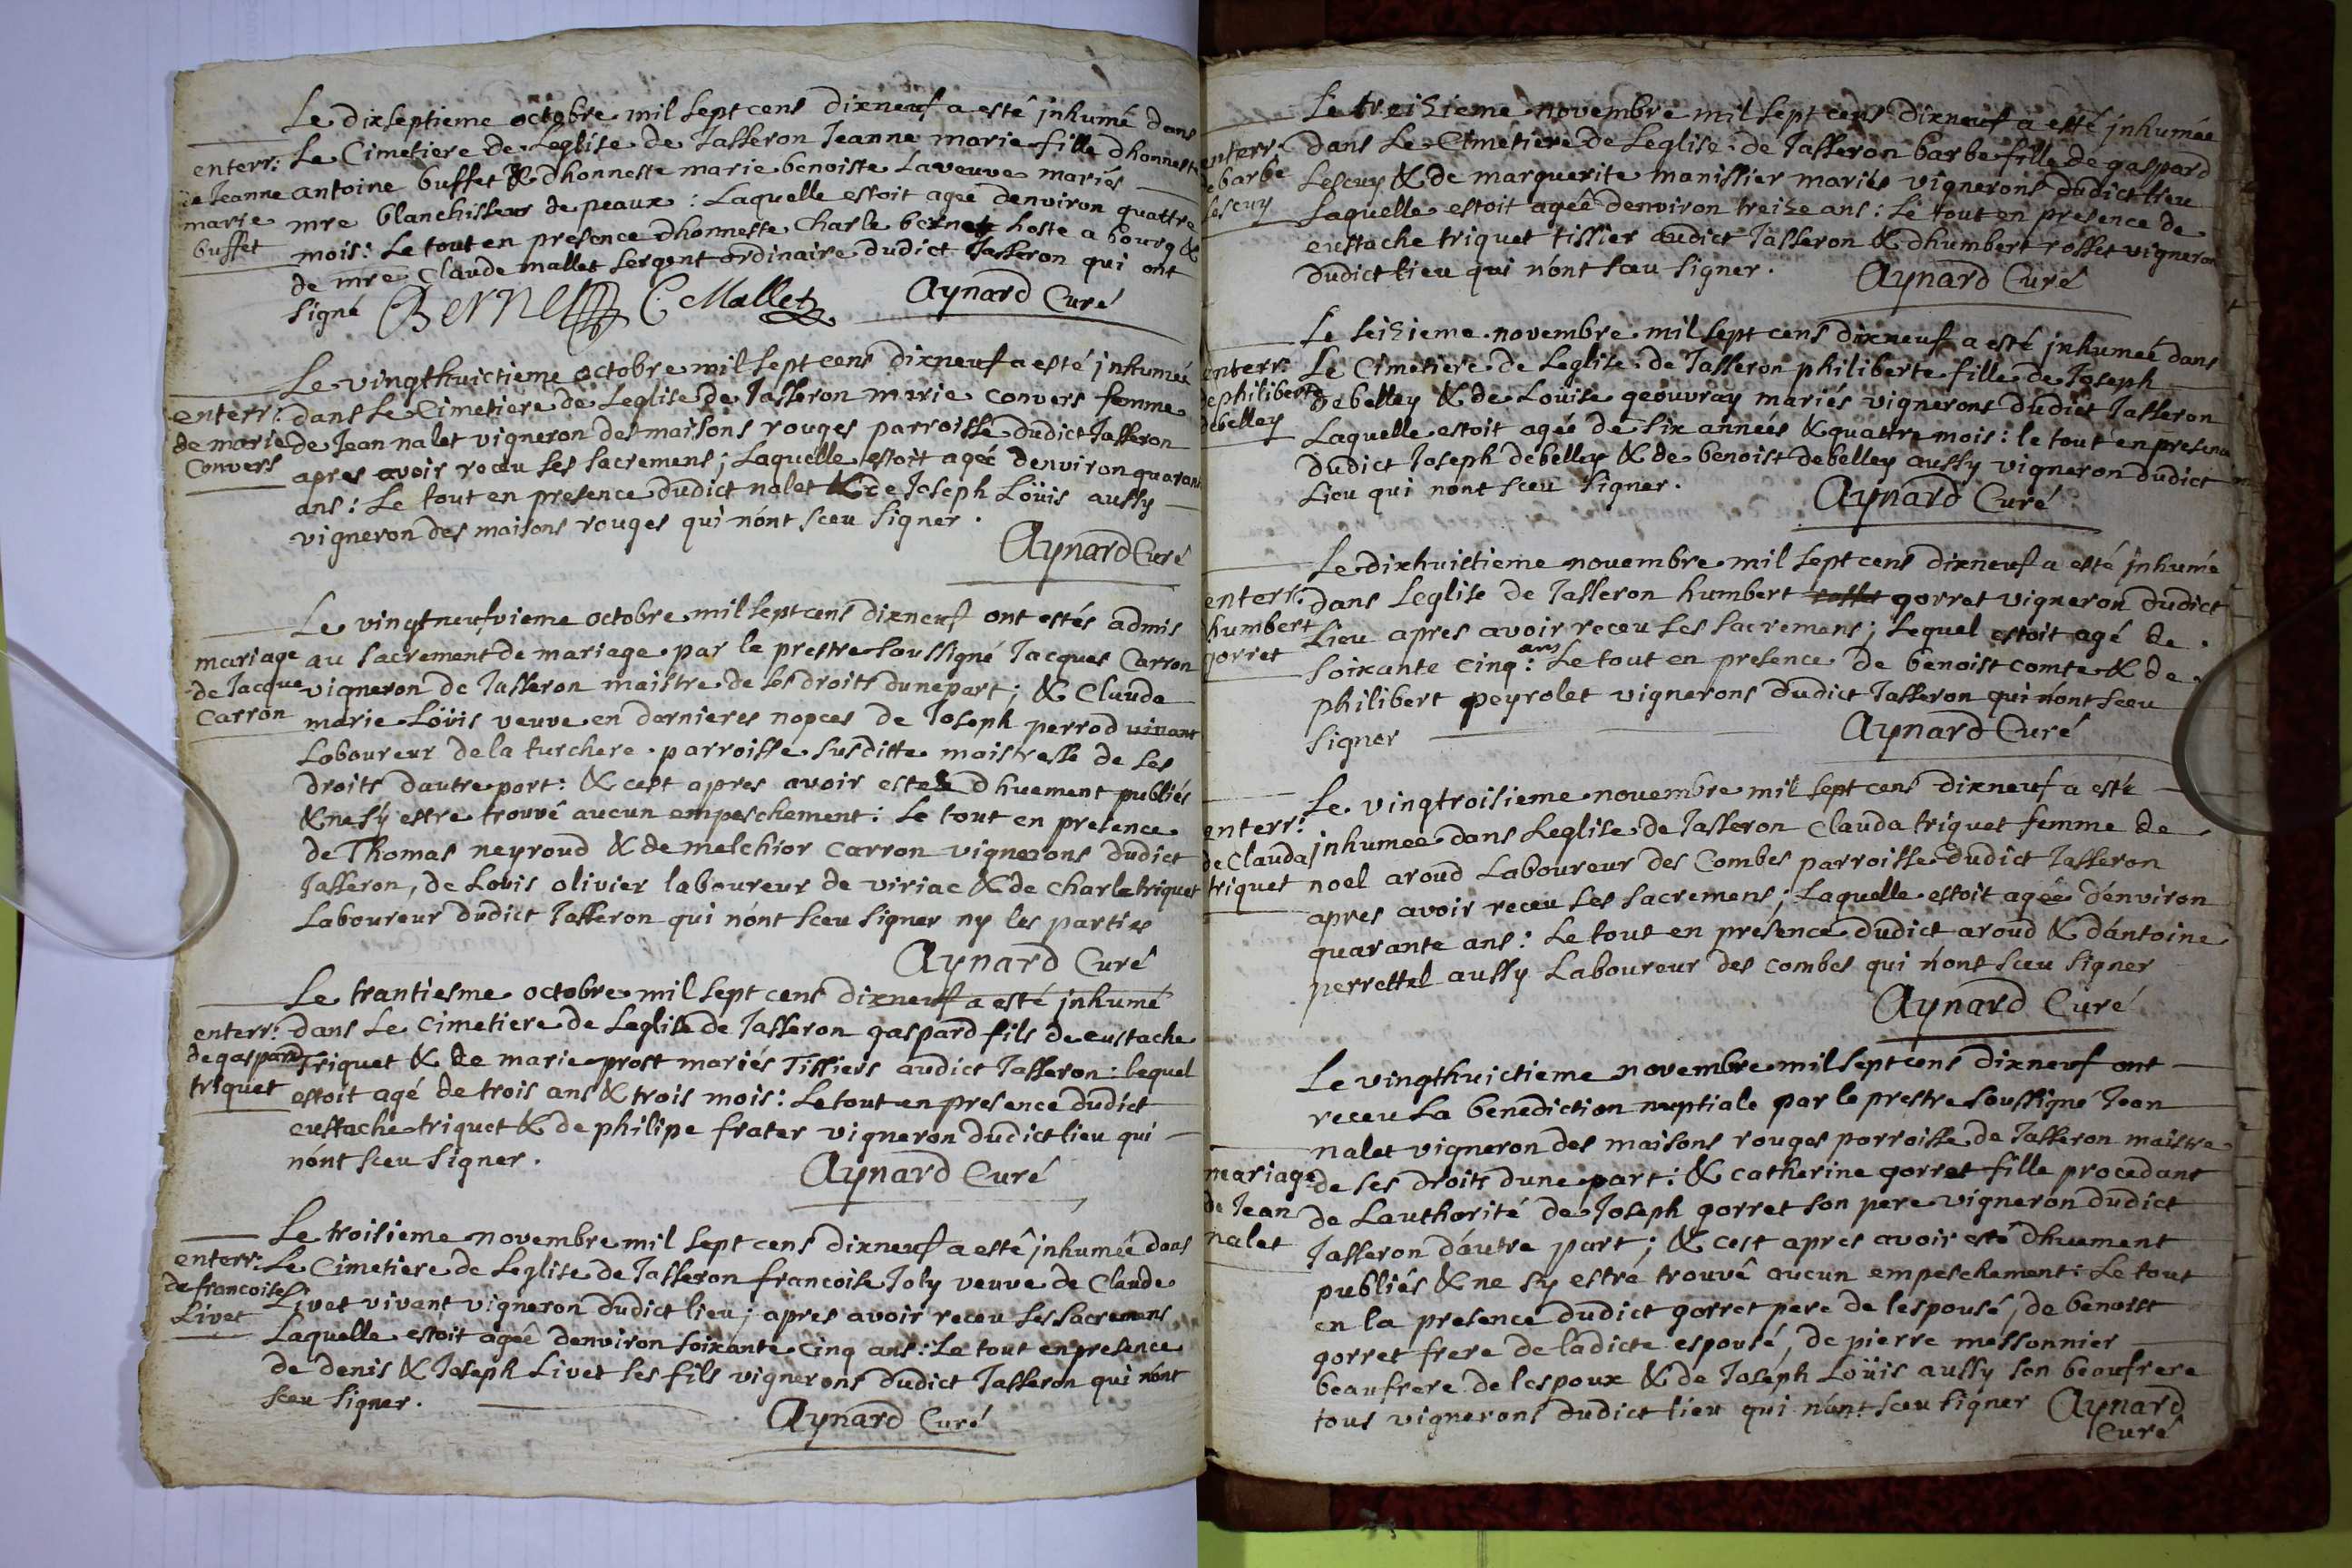 Le dixseptieme octobre mil sept cens dixneuf a esté jnhumé dans
enterr: Le Cimetiere de Leglise de Jasseron Jeanne marie fille dhonneste
de Jeanne antoine buffet & dhonneste marie benoiste Laveuve mariés
marie mre blanchisseur de peaux : Laquelle estoit ageé denviron quattre
buffet mois : Le tout en presence dhonneste Charle bernet hoste a bourg &
de mre Claude mallet sergent ordinaire dudict Jasseron qui ont
signé Bernet C Mallet Aynard Curé
Le vingthuictieme octobre mil sept cens dixneuf a esté jnhumeé
enterr: dans Le Cimetiere de Léglise de Jasseron marie convers femme
de marie de Jean nalet vigneron des maisons rouges parroisse dudict Jasseron
Convers apres avoir receu ses sacremens ; Laquelle estoit ageé denviron quarante
ans : Le tout en presence dudict nalet & de Joseph Loüis aussy
vigneron des maisons rouges qui nónt sceu signer .
Aynard Curé
Le vingtneufvieme octobre mil sept cens dixneuf ont estés admis
mariage au sacrement de mariage par le prestre soussigné Jacques Carron
de Jacque vigneron de Jasseron maistre de ses droits dune part ; & Clauda
Carron marie Loüis veuve en dernieres nopces de Joseph perrod vivant
Laboureur de la turchere parroisse susditte maistresse de ses
droits dautre part : & cest apres avoir estés dhuement publiés
& ne sý estre trouvé aucun empeschement : Le tout en presence
de Thomas neyroud & de melchior Carron vignerons dudict
Jasseron, de Loüis olivier laboureur de viriac & de charle triquet
Laboureur dudict Jasseron qui nónt sceu signer ny les parties
Aynard Curé
Le trantiesme octobre mil sept cens dixneuf a esté jnhumé
enterr: dans Le cimetiere de Leglise de Jasseron gaspard fils de eustache
de gaspard Triquet & de marie prost mariés Tissiers audict Jasseron : lequel
triquet estoit agé de trois ans & trois mois : Le tout en presence dudict
eustache triquet & de philipe frater vigneron dudict lieu qui
nónt sceu signer . Aynard Curé
Le troisieme novembre mil sept cens dixneuf a esté jnhumeé dans
enterr: Le Cimetiere de Leglise de Jasseron francoise Joly veuve de Claude
de francoise Livet vivant vigneron dudict lieu ; apres avoir receu ses sacremens
Livet Laquelle estoit ageé denviron soixante cinq ans : Le tout en presence
de denis & Joseph Livet ses fils vignerons dudict Jasseron qui nónt
sceu signer .
Aynard Curé
Le treizieme novembre mil sept cens dixneuf a esté jnhumée
enterr: dans Le Cimetiere de Leglise de Jasseron barbe fille de gaspard
de barbe Lescuy & de marguerite manissier mariés vignerons dudict lieu
Lescuy Laquelle estoit ageé denviron treize ans : Le tout en presence de
eustache triquet tissier audict Jasseron & dhumbert rosset vigneron
dudict lieu qui nónt sceu signer . Aynard Curé
Le seizieme novembre mil sept cens dixneuf a esté jnhumeé dans
enterr: Le Cimetiere de Leglise de Jasseron philiberte fille de Joseph
de philiberte debelley & de Louise geouvray mariés vignerons dudict Jasseron
debelley Laquelle estoit ageé de six années & quattre mois : le tout en presence
dudict Joseph debelley & de benoist debelley aussy vigneron dudict
Lieu qui nont sceu signer . Aynard Curé
Le dixhuictieme novembre mil sept cens dixneuf a esté jnhumé
enterr: dans Leglise de Jasseron humbert rosset gorret vigneron dudict
humbert Lieu apres avoir receu ses sacremens ; Lequel estoit agé de
gorret soixante cinq ans : Le tout en presence de benoist comte & de
philibert peyrolet vignerons dudict Jasseron qui nónt sceu
signer Aynard Curé
Le vingtroisieme novembre mil sept cens dixneuf a esté
enterr: jnhumeé dans Leglise de Jasseron Clauda triquet femme de
de Clauda noel aroud Laboureur des Combes parroisse dudict Jasseron
triquet apres avoir receu ses sacremens ; Laquelle estoit ageé dénviron
quarante ans : Le tout en présence dudict aroud & dántoine
perrettel aussy Laboureur des combes qui nónt sceu signer
Aynard Curé
Le vingthuictieme novembre mil sept cens dixneuf ont
receu La benediction nuptiale par le prestre soussigné Jean
nalet vigneron des maisons rouges parroisse de Jasseron maistre
mariage de ses droits dune part : & catherine gorret fille procedant
de Jean de Lauthorité de Joseph gorret son pere vigneron dudict
nalet Jasseron dáutre part ; & cest apres avoir esté dhuement
publiés & ne sy estré trouvé aucun empeschement : Le tout
en la presence dudict gorret pere de lespousé, de benoist
gorret frere de ladicte espousé, de pierre messonnier
beaufrere de lespoux & de Joséph Loüis aussy son beaufrere
tous vignerons dudict lieu qui nónt sceu signer Aynard
Curé